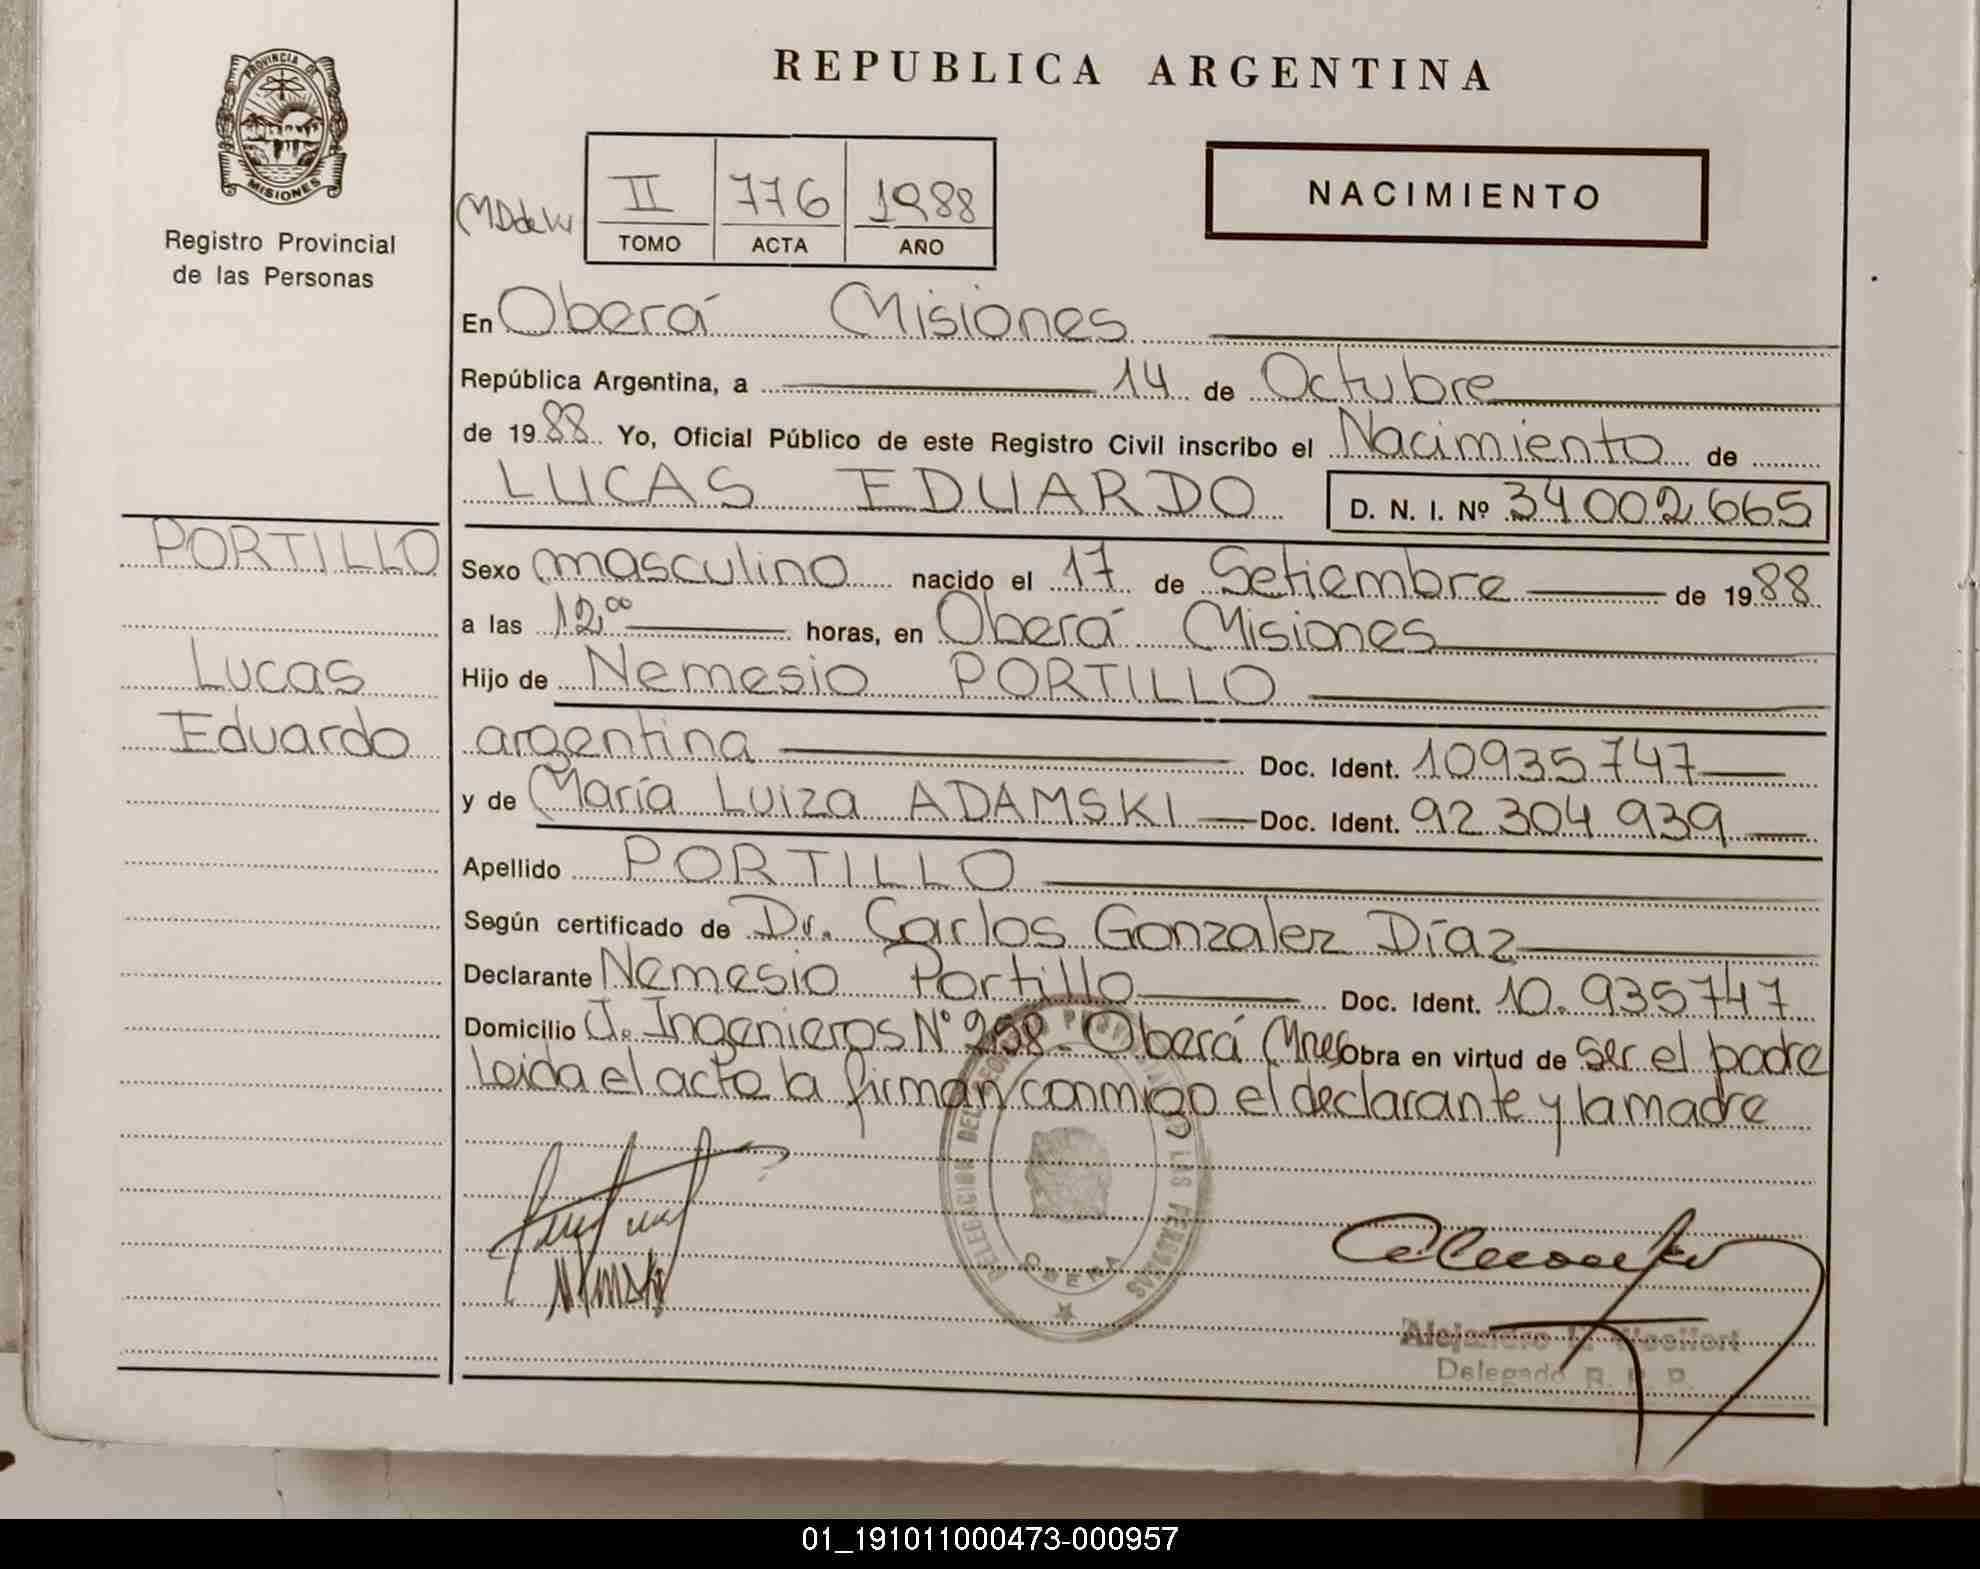 REPUBLICA ARGENTINA
PROVINCIA DE
MISIONES
Registro Provincial
de las Personas
II 776 1988
TOMO ACTA AÑO
NACIMIENTO
En Oberá Misiones
República Argentina, a 14 de Octubre
de 1988 Yo, Oficial Público de este Registro Civil inscribo el Nacimiento de
LUCAS EDUARDO D. N. I. Nº 34 002 665
PORTILLO
Lucas
Eduardo
Sexo masculino nacido el 17 de Setiembre de 1988
a las 12,00 horas, en Oberá Misiones
Hijo de Nemesio PORTILLO
argentina Doc. Ident. 10935747
y de María Luiza ADAMSKI Doc. Ident. 92 304 939
Apellido PORTILLO
Según certificado de Dr. Carlos Gonzalez Díaz
Declarante Nemesio Portillo Doc. Ident. 10.935747
Domicilio J. Ingenieros Nº 258 - Oberá Mnes Obra en virtud de ser el padre
Leida el acta la firman conmigo el declarante y la madre
DELEGACION DEL PROVINCIAL LAS PERSONAS
OBERA
Alejandro
Delegado R. P. P.
01_191011000473-000957